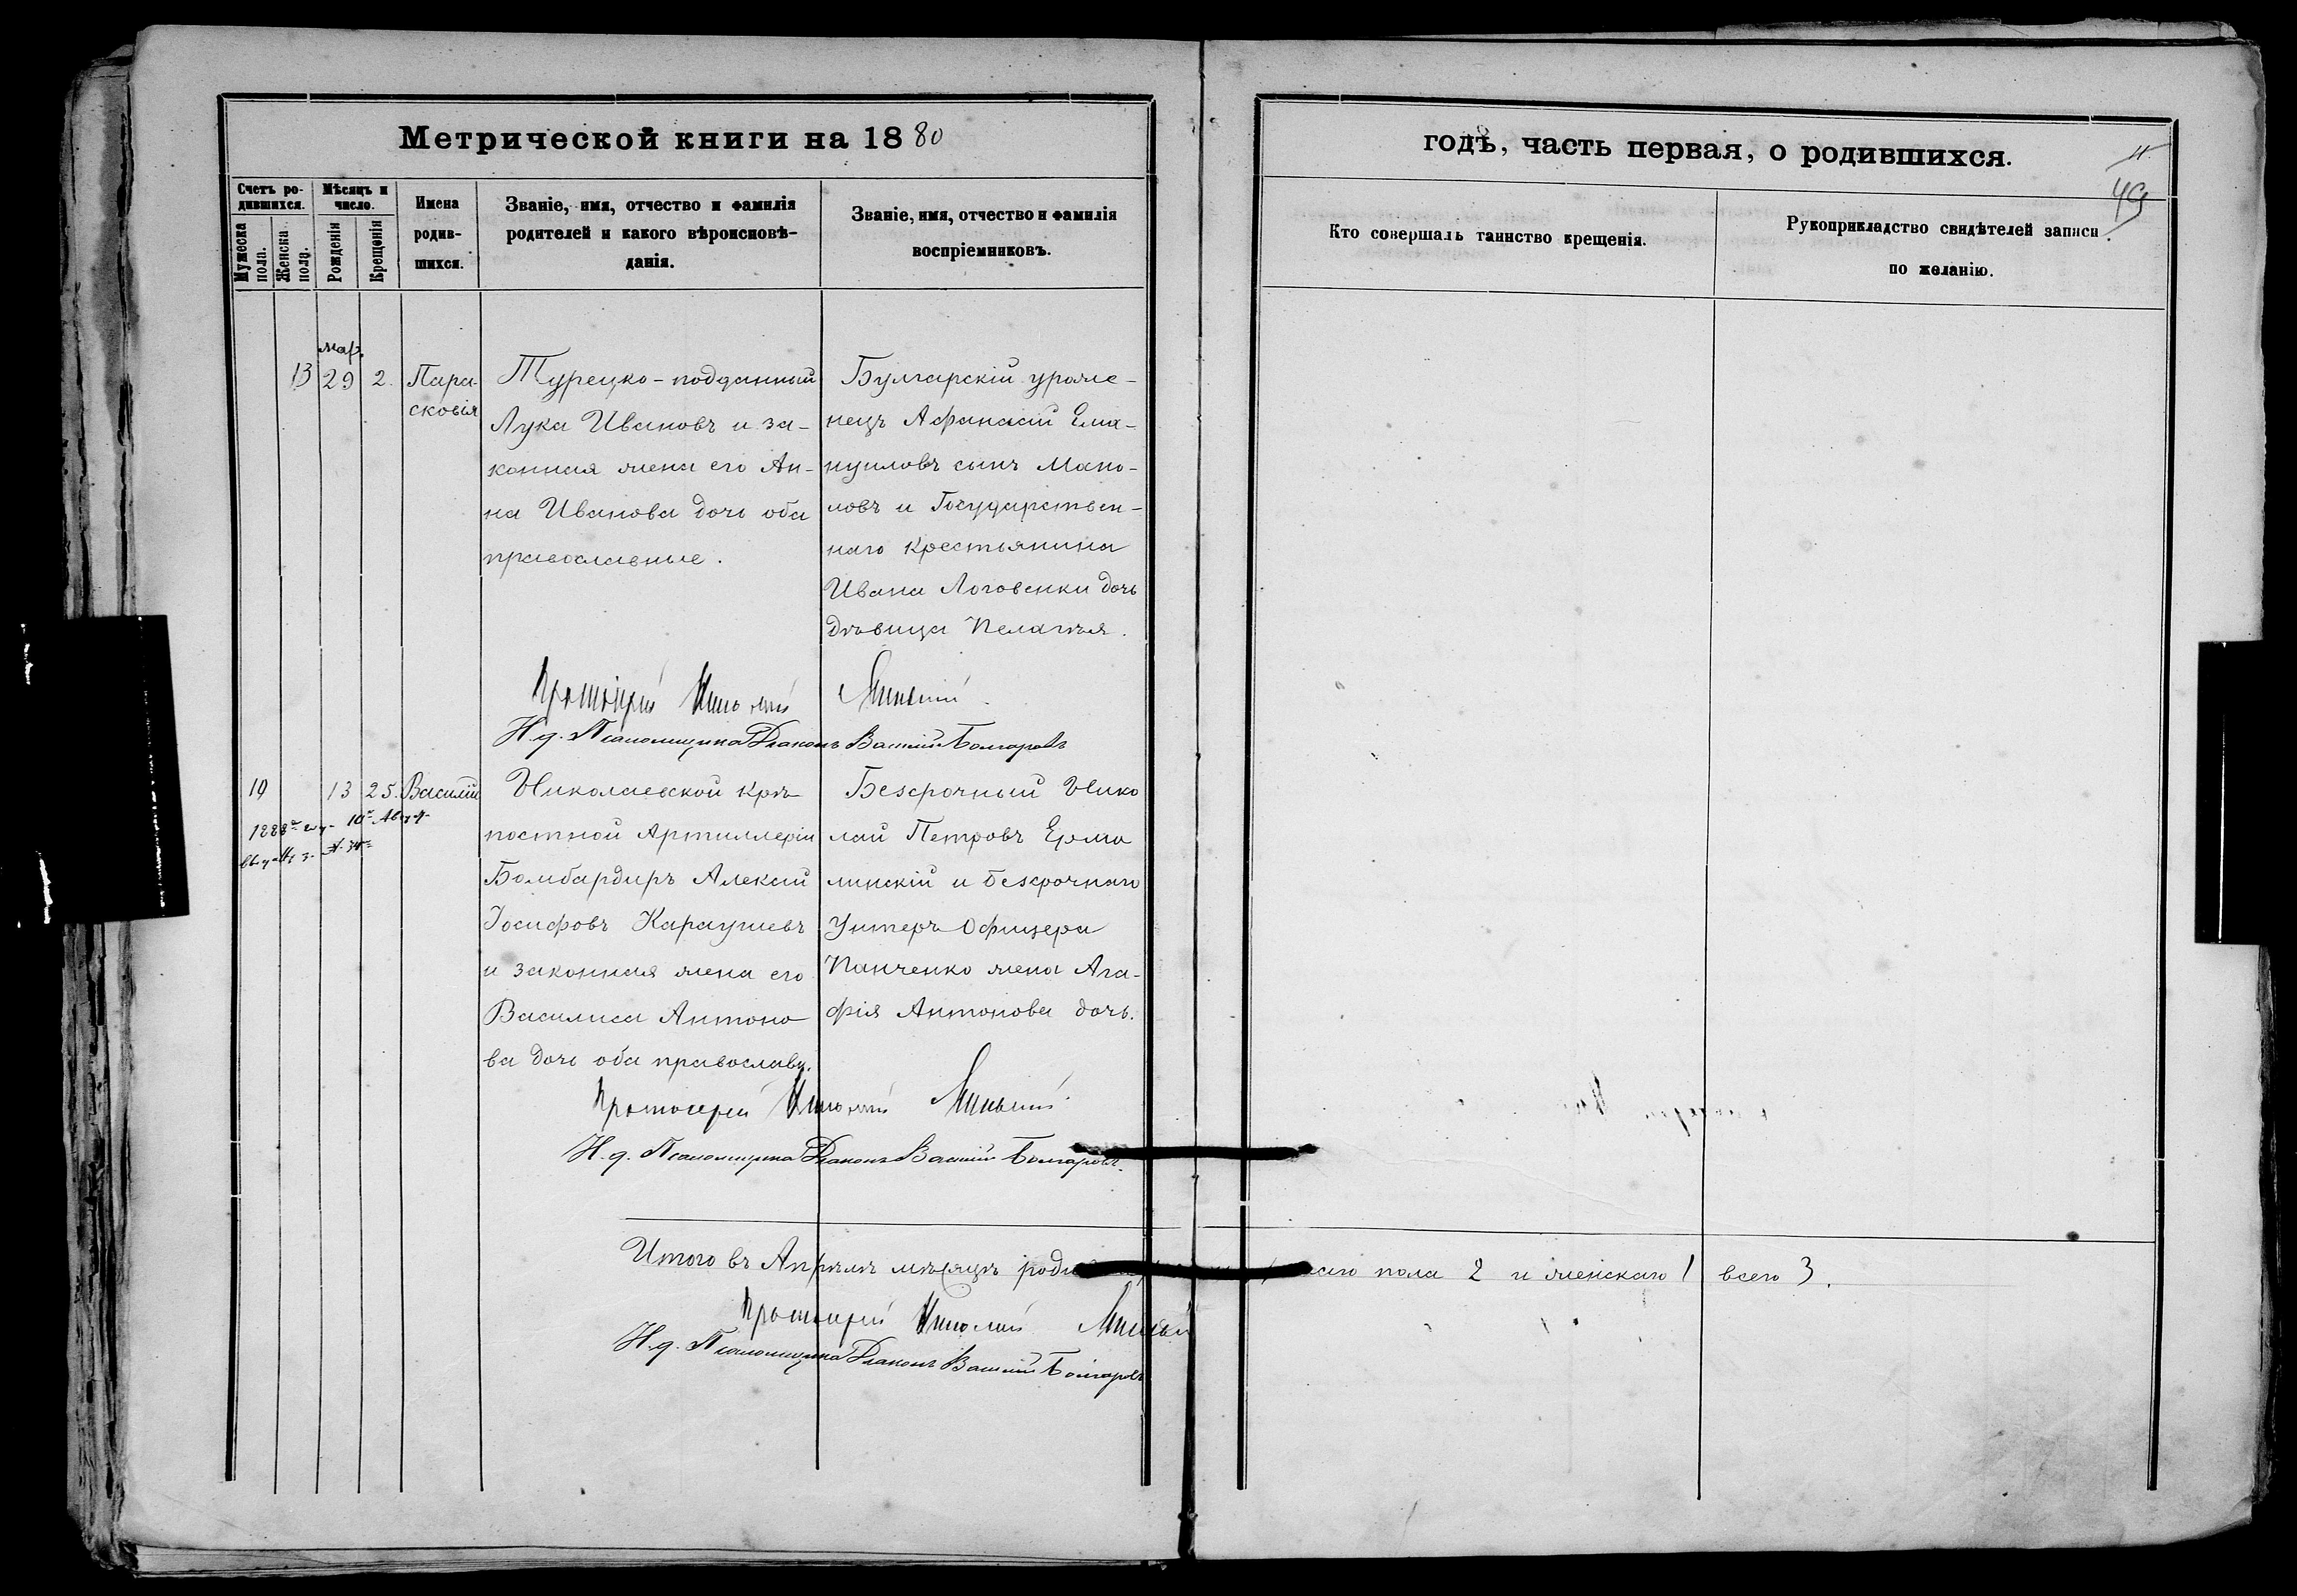 Метрической книги на 1880
годѣ, часть первая, о родившихся.
11.
49
Счетъ ро-
дившихся.
Мужеска пола.
Женска пола.
Мѣсяцъ и
число.
Рожденія
Крещенія
Имена
родив-
шихся.
Званіе, имя, отчество и фамилія
родителей и какого вѣроисповѣ-
данія.
Званіе, имя, отчество и фамилія
воспріемниковъ.
Кто совершалъ таинство крещенія.
Рукоприкладство свидѣтелей записи
по желанію.
мар.
13 29 2. Пара-
сковія
Турецко-подданный
Лука Ивановъ и за-
конная жена его Ан-
на Иванова дочь оба
православные.
Булгарскій уроже-
нецъ Афанасій Ема-
нуиловъ сынъ Мано-
ловъ и Государствен-
наго Крестьянина
Ивана Логовенки дочь
дѣвица Пелагѣя.
Протоіерей Николай Минскій.
И. д. Псаломщика Діаконъ Василій Болгаровъ
10 13 25. Василій
Николаевской крѣ-
постной Артиллеріи
Бомбардиръ Алексій
Іосифовъ Караушевъ
и законная жена его
Василиса Антоно-
ва дочь оба православн.
Безсрочный Нико
лай Петровъ Ермо
линскій и безсрочнаго
Унтеръ Офицера
Панченко жена Ага-
фія Антонова дочь.
Протоіерей Николай Минскій
И. д. Псаломщика Діаконъ Василій Болгаровъ.
Итого въ Апрѣлѣ мѣсяцѣ пола 2 и женскаго 1 всего 3.
Протоіерей Николай Минскій
И. д. Псаломщика Діаконъ Василій Болгаровъ